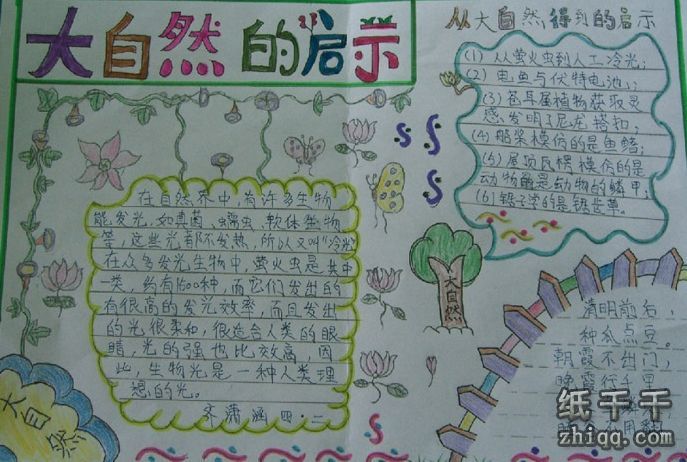 大自然的启示
从大自然得到的启示
(1)从萤火虫到人工冷光;
(2)电鱼与伏特电池;
(3)苍耳属植物获取灵
感发明了尼龙搭扣;
(4)船桨模仿的是鱼鳍;
(5)屋顶瓦楞模仿的是
动物是动物的鳞甲;
(6)锯子的是锯齿草。
在自然界中,有许多生物
能发光,如真菌、蠕虫、软体生物
等,这些光都不发热,所以又叫“冷光”
在众多发光生物中,萤火虫是其中
一类,约有1500种,而它们发出的
有很高的发光效率,而且发出
的光很柔和,很适合人类的眼
睛,光的强也比效高,因
此,生物光是一种人类理
想的光。
涵 四·二
大自然
大自然
清明前后,
种瓜点豆。
朝霞不出门,
晚霞行千里
纸千千
zhiqq.com